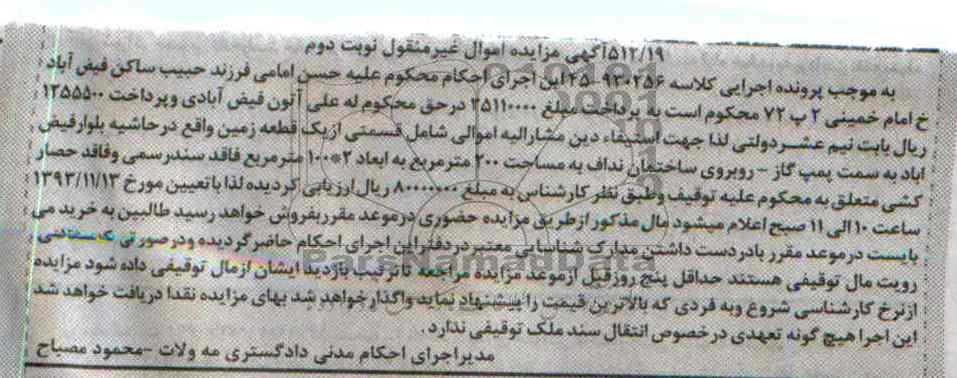 ۵۱۲/۱۹آگهی مزایده اموال غیرمنقول نوبت دوم
به موجب پرونده اجرایی کلاسه ۹۳۰۲۵۶-۲۵ این اجرای احکام محکوم علیه حسن امامی فرزند حبیب ساکن فیض آباد
خ امام خمینی ۲ پ ۷۲ محکوم است به پرداخت مبلغ ۲۵۱۱۰۰۰۰ درحق محکوم له علی آتون فیض آبادی وپرداخت ۱۲۵۵۵۰۰
ریال بابت نیم عشردولتی لذا جهت استیفاء دین مشارالیه اموالی شامل قسمتی ازیک قطعه زمین واقع درحاشیه بلوارفیض
اباد به سمت پمپ گاز - روبروی ساختمان نداف به مساحت ۲۰۰ مترمربع به ابعاد ۲*۱۰۰ مترمربع فاقد سندرسمی وفاقد حصار
کشی متعلق به محکوم علیه توقیف وطبق نظر کارشناس به مبلغ ۸۰۰۰۰۰۰۰ ریال ارزیابی گردیده لذا باتعیین مورخ ۱۳۹۳/۱۱/۱۳
ساعت ۱۰ الی ۱۱ صبح اعلام میشود مال مذکور ازطریق مزایده حضوری درموعد مقرر بفروش خواهد رسید طالبین به خرید می
بایست درموعد مقرر بادردست داشتن مدارک شناسایی معتبر دردفتراین اجرای احکام حاضرگردیده ودرصورتی که متقاضی
رویت مال توقیفی هستند حداقل پنج روزقبل ازموعد مزایده مراجعه تاترتیب بازدید ایشان ازمال توقیفی داده شود مزایده
ازنرخ کارشناسی شروع وبه فردی که بالاترین قیمت را پیشنهاد نماید واگذارخواهد شد بهای مزایده نقدا دریافت خواهد شد
این اجرا هیچ گونه تعهدی درخصوص انتقال سند ملک توقیفی ندارد.
مدیراجرای احکام مدنی دادگستری مه ولات -محمود مصباح
ParsNamadData